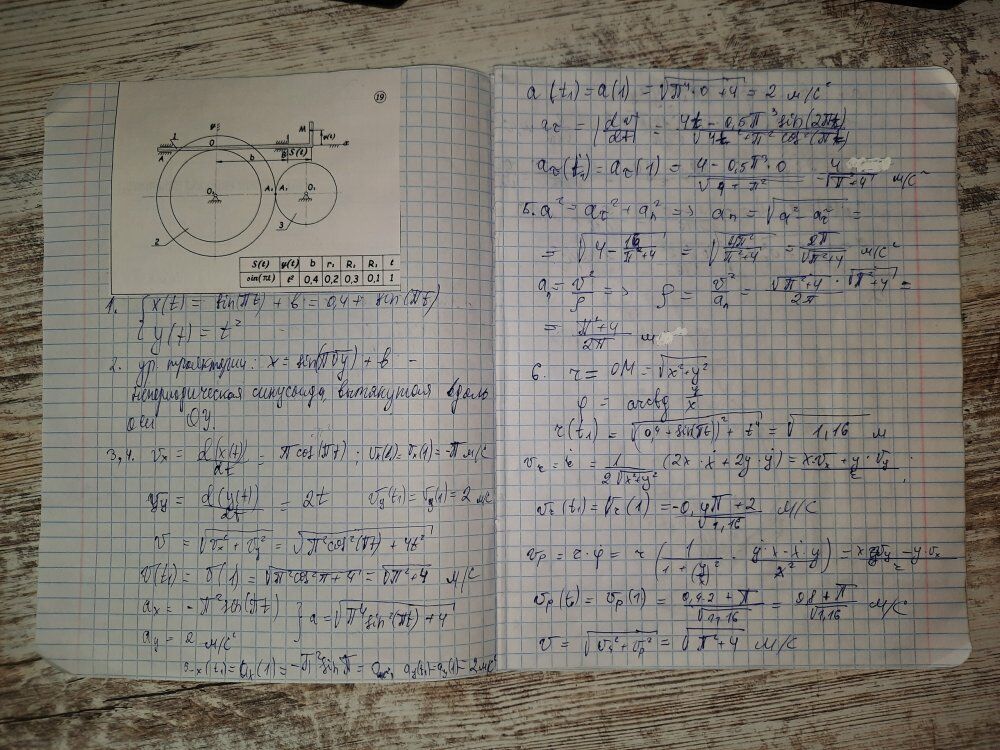 19
y
M
y(t)
1
O
1
x
A
B
S(t)
b
A₁
A₁
O₂
O₁
2
3
S(t) y(t) b r₁ R₂ R₁ t
sin(πt) t² 0,4 0,2 0,3 0,1 1
1. { x(t) = sin(πt) + b = 0,4 + sin(πt)
{ y(t) = t²
2. ур. траектории: x = sin(π√y) + b –
непериодическая синусоида, вытянутая вдоль
оси OY.
3,4. vx = d(x(t))/dt = π cos(πt); vx(t₁) = vx(1) = -π м/с
vy = d(y(t))/dt = 2t vy(t₁) = vy(1) = 2 м/с
v = √(vx² + vy²) = √(π²cos²(πt) + 4t²)
v(t₁) = v(1) = √(π²cos²π + 4) = √(π²+4) м/с
ax = -π² sin(πt) } a = √(π⁴ sin²(πt) + 4)
ay = 2 м/с²
ax(t₁) = ax(1) = -π² sin π = 0 ay(t₁) = ay(1) = 2 м/с²
a(t₁) = a(1) = √(π⁴·0 + 4) = 2 м/с²
aτ = |dv/dt| = (4t - 0,5π³ sin(2πt))/√(4t² + π² cos²(πt))
aτ(t₁) = aτ(1) = (4 - 0,5π³·0)/√(4 + π²) = 4/√(π²+4) м/с²
5. a² = aτ² + an² => an = √(a² - aτ²) =
= √(4 - 16/(π²+4)) = √(4π²/(π²+4)) = 2π/√(π²+4) м/с²
an = v²/ρ => ρ = v²/an = √(π²+4) · √(π²+4)/2π =
= (π²+4)/2π м
6. r = OM = √(x²+y²)
φ = arctg y/x
r(t₁) = √((0,4 + sin(πt))² + t⁴) = √1,16 м
vr = ṙ = 1/(2√(x²+y²)) (2x·ẋ + 2y·ẏ) = (x·vx + y·vy)/r;
vr(t₁) = vr(1) = (-0,4π + 2)/√1,16 м/с
vp = r·φ̇ = r (1/(1+(y/x)²) · (ẏ·x - ẋ·y)/x²) = (x·vy - y·vx)/r
vp(t₁) = vp(1) = (0,4·2 + π)/√1,16 = (0,8 + π)/√1,16 м/с
v = √(vr² + vp²) = √(π²+4) м/с